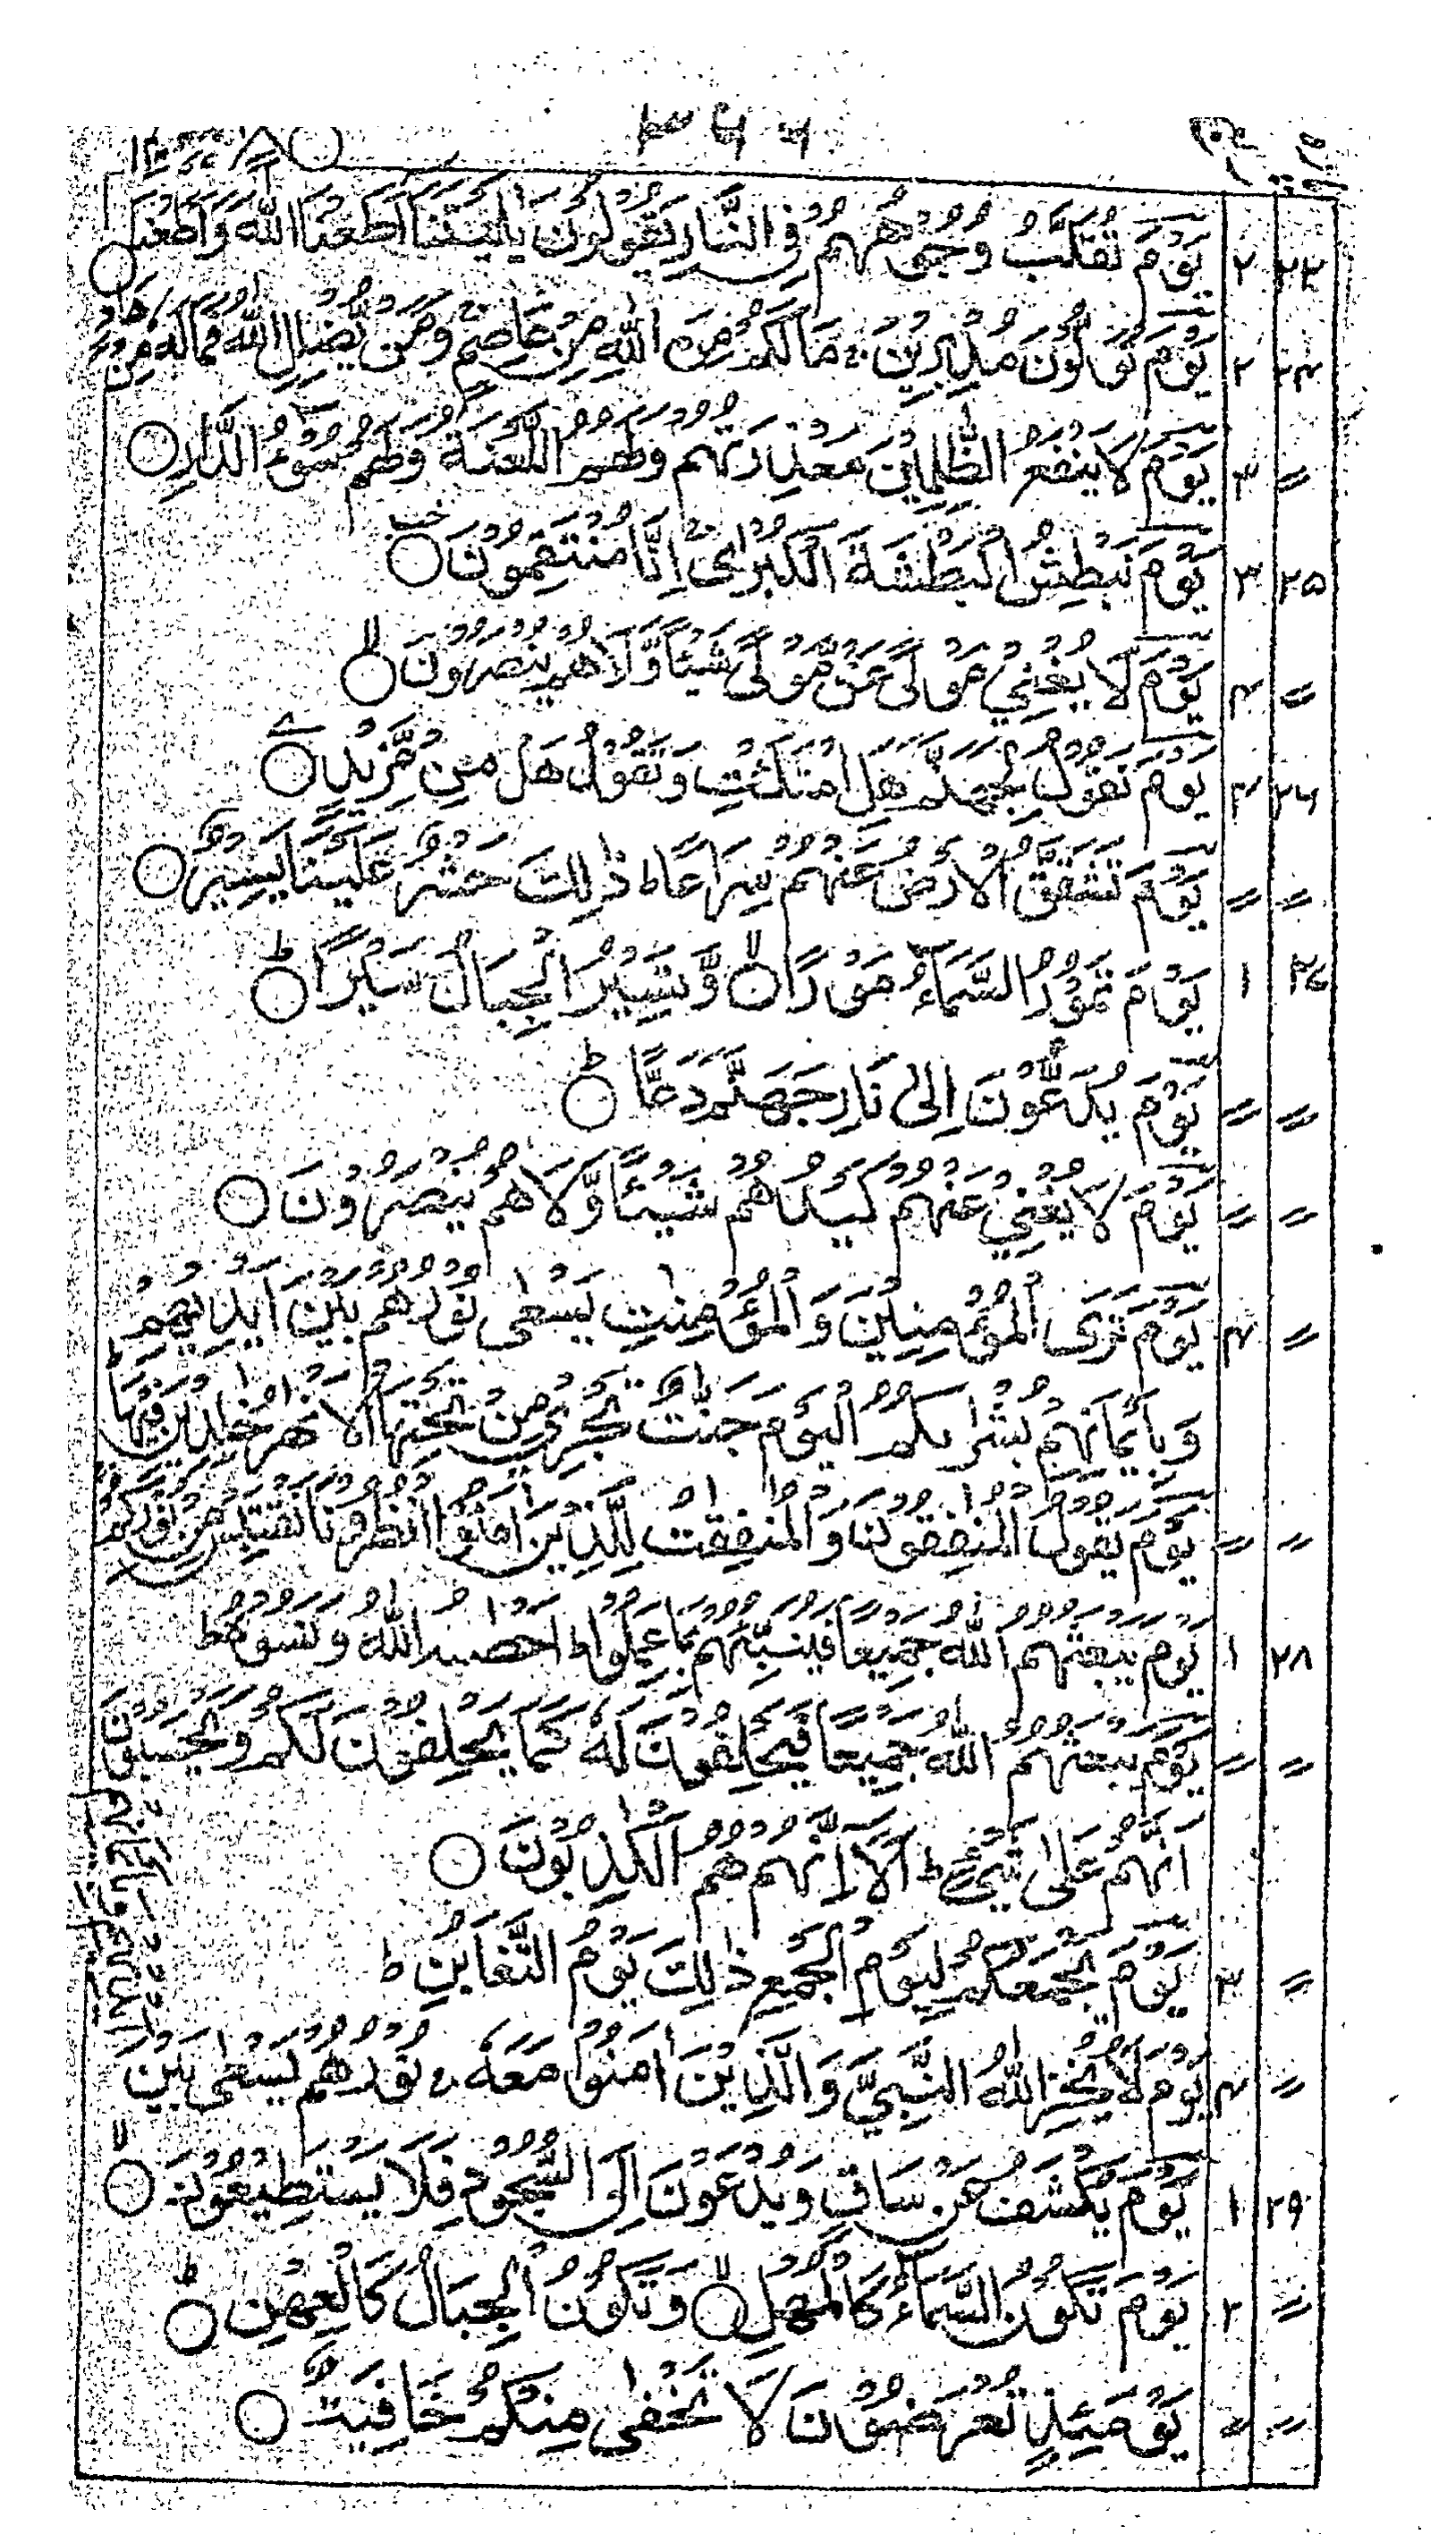 ۲۲ ۲ يَوْمَ تُقَلَّبُ وُجُوْهُهُمْ فِى النَّارِ يَقُوْلُوْنَ يٰلَيْتَنَا اَطَعْنَا اللّٰهَ وَاَطَعْنَا
۲۴ ۲ يَوْمَ تُوَلُّوْنَ مُدْبِرِيْنَ ۚ مَا لَكُمْ مِّنَ اللّٰهِ مِنْ عَاصِمٍ وَمَنْ يُّضْلِلِ اللّٰهُ فَمَا لَهٗ مِنْ هَادٍ
〃 ۳ يَوْمَ لَا يَنْفَعُ الظّٰلِمِيْنَ مَعْذِرَتُهُمْ وَلَهُمُ اللَّعْنَةُ وَلَهُمْ سُوْٓءُ الدَّارِ ○
۲۵ ۳ يَوْمَ نَبْطِشُ الْبَطْشَةَ الْكُبْرٰى اِنَّا مُنْتَقِمُوْنَ ○
〃 ۴ يَوْمَ لَا يُغْنِىْ مَوْلًى عَنْ مَّوْلًى شَيْئًا وَّلَا هُمْ يُنْصَرُوْنَ ○
۲۶ ۴ يَوْمَ نَقُوْلُ لِجَهَنَّمَ هَلِ امْتَلَئْتِ وَتَقُوْلُ هَلْ مِنْ مَّزِيْدٍ ○
〃 〃 يَوْمَ تَشَقَّقُ الْاَرْضُ عَنْهُمْ سِرَاعًا ط ذٰلِكَ حَشْرٌ عَلَيْنَا يَسِيْرٌ ○
۲۷ ۱ يَوْمَ تَمُوْرُ السَّمَآءُ مَوْرًا ○ وَّتَسِيْرُ الْجِبَالُ سَيْرًا ○
〃 〃 يَوْمَ يُدَعُّوْنَ اِلٰى نَارِ جَهَنَّمَ دَعًّا ○
〃 〃 يَوْمَ لَا يُغْنِىْ عَنْهُمْ كَيْدُهُمْ شَيْئًا وَّلَا هُمْ يُنْصَرُوْنَ ○
〃 ۴ يَوْمَ تَرَى الْمُؤْمِنِيْنَ وَالْمُؤْمِنٰتِ يَسْعٰى نُوْرُهُمْ بَيْنَ اَيْدِيْهِمْ
وَبِاَيْمَانِهِمْ بُشْرٰىكُمُ الْيَوْمَ جَنّٰتٌ تَجْرِىْ مِنْ تَحْتِهَا الْاَنْهٰرُ خٰلِدِيْنَ فِيْهَا ط
〃 〃 يَوْمَ يَقُوْلُ الْمُنٰفِقُوْنَ وَالْمُنٰفِقٰتُ لِلَّذِيْنَ اٰمَنُوا انْظُرُوْنَا نَقْتَبِسْ مِنْ نُّوْرِكُمْ
۲۸ ۱ يَوْمَ يَبْعَثُهُمُ اللّٰهُ جَمِيْعًا فَيُنَبِّئُهُمْ بِمَا عَمِلُوْا ط اَحْصٰىهُ اللّٰهُ وَنَسُوْهُ ط
〃 〃 يَوْمَ يَبْعَثُهُمُ اللّٰهُ جَمِيْعًا فَيَحْلِفُوْنَ لَهٗ كَمَا يَحْلِفُوْنَ لَكُمْ وَيَحْسَبُوْنَ
اَنَّهُمْ عَلٰى شَىْءٍ ط اَلَآ اِنَّهُمْ هُمُ الْكٰذِبُوْنَ ○
〃 ۳ يَوْمَ يَجْمَعُكُمْ لِيَوْمِ الْجَمْعِ ذٰلِكَ يَوْمُ التَّغَابُنِ ط
〃 ۴ يَوْمَ لَا يُخْزِى اللّٰهُ النَّبِىَّ وَالَّذِيْنَ اٰمَنُوْا مَعَهٗ ۚ نُوْرُهُمْ يَسْعٰى بَيْنَ
۲۹ ۱ يَوْمَ يُكْشَفُ عَنْ سَاقٍ وَّيُدْعَوْنَ اِلَى السُّجُوْدِ فَلَا يَسْتَطِيْعُوْنَ ○
〃 ۲ يَوْمَ تَكُوْنُ السَّمَآءُ كَالْمُهْلِ ○ وَتَكُوْنُ الْجِبَالُ كَالْعِهْنِ ○
〃 〃 يَوْمَئِذٍ تُعْرَضُوْنَ لَا تَخْفٰى مِنْكُمْ خَافِيَةٌ ○